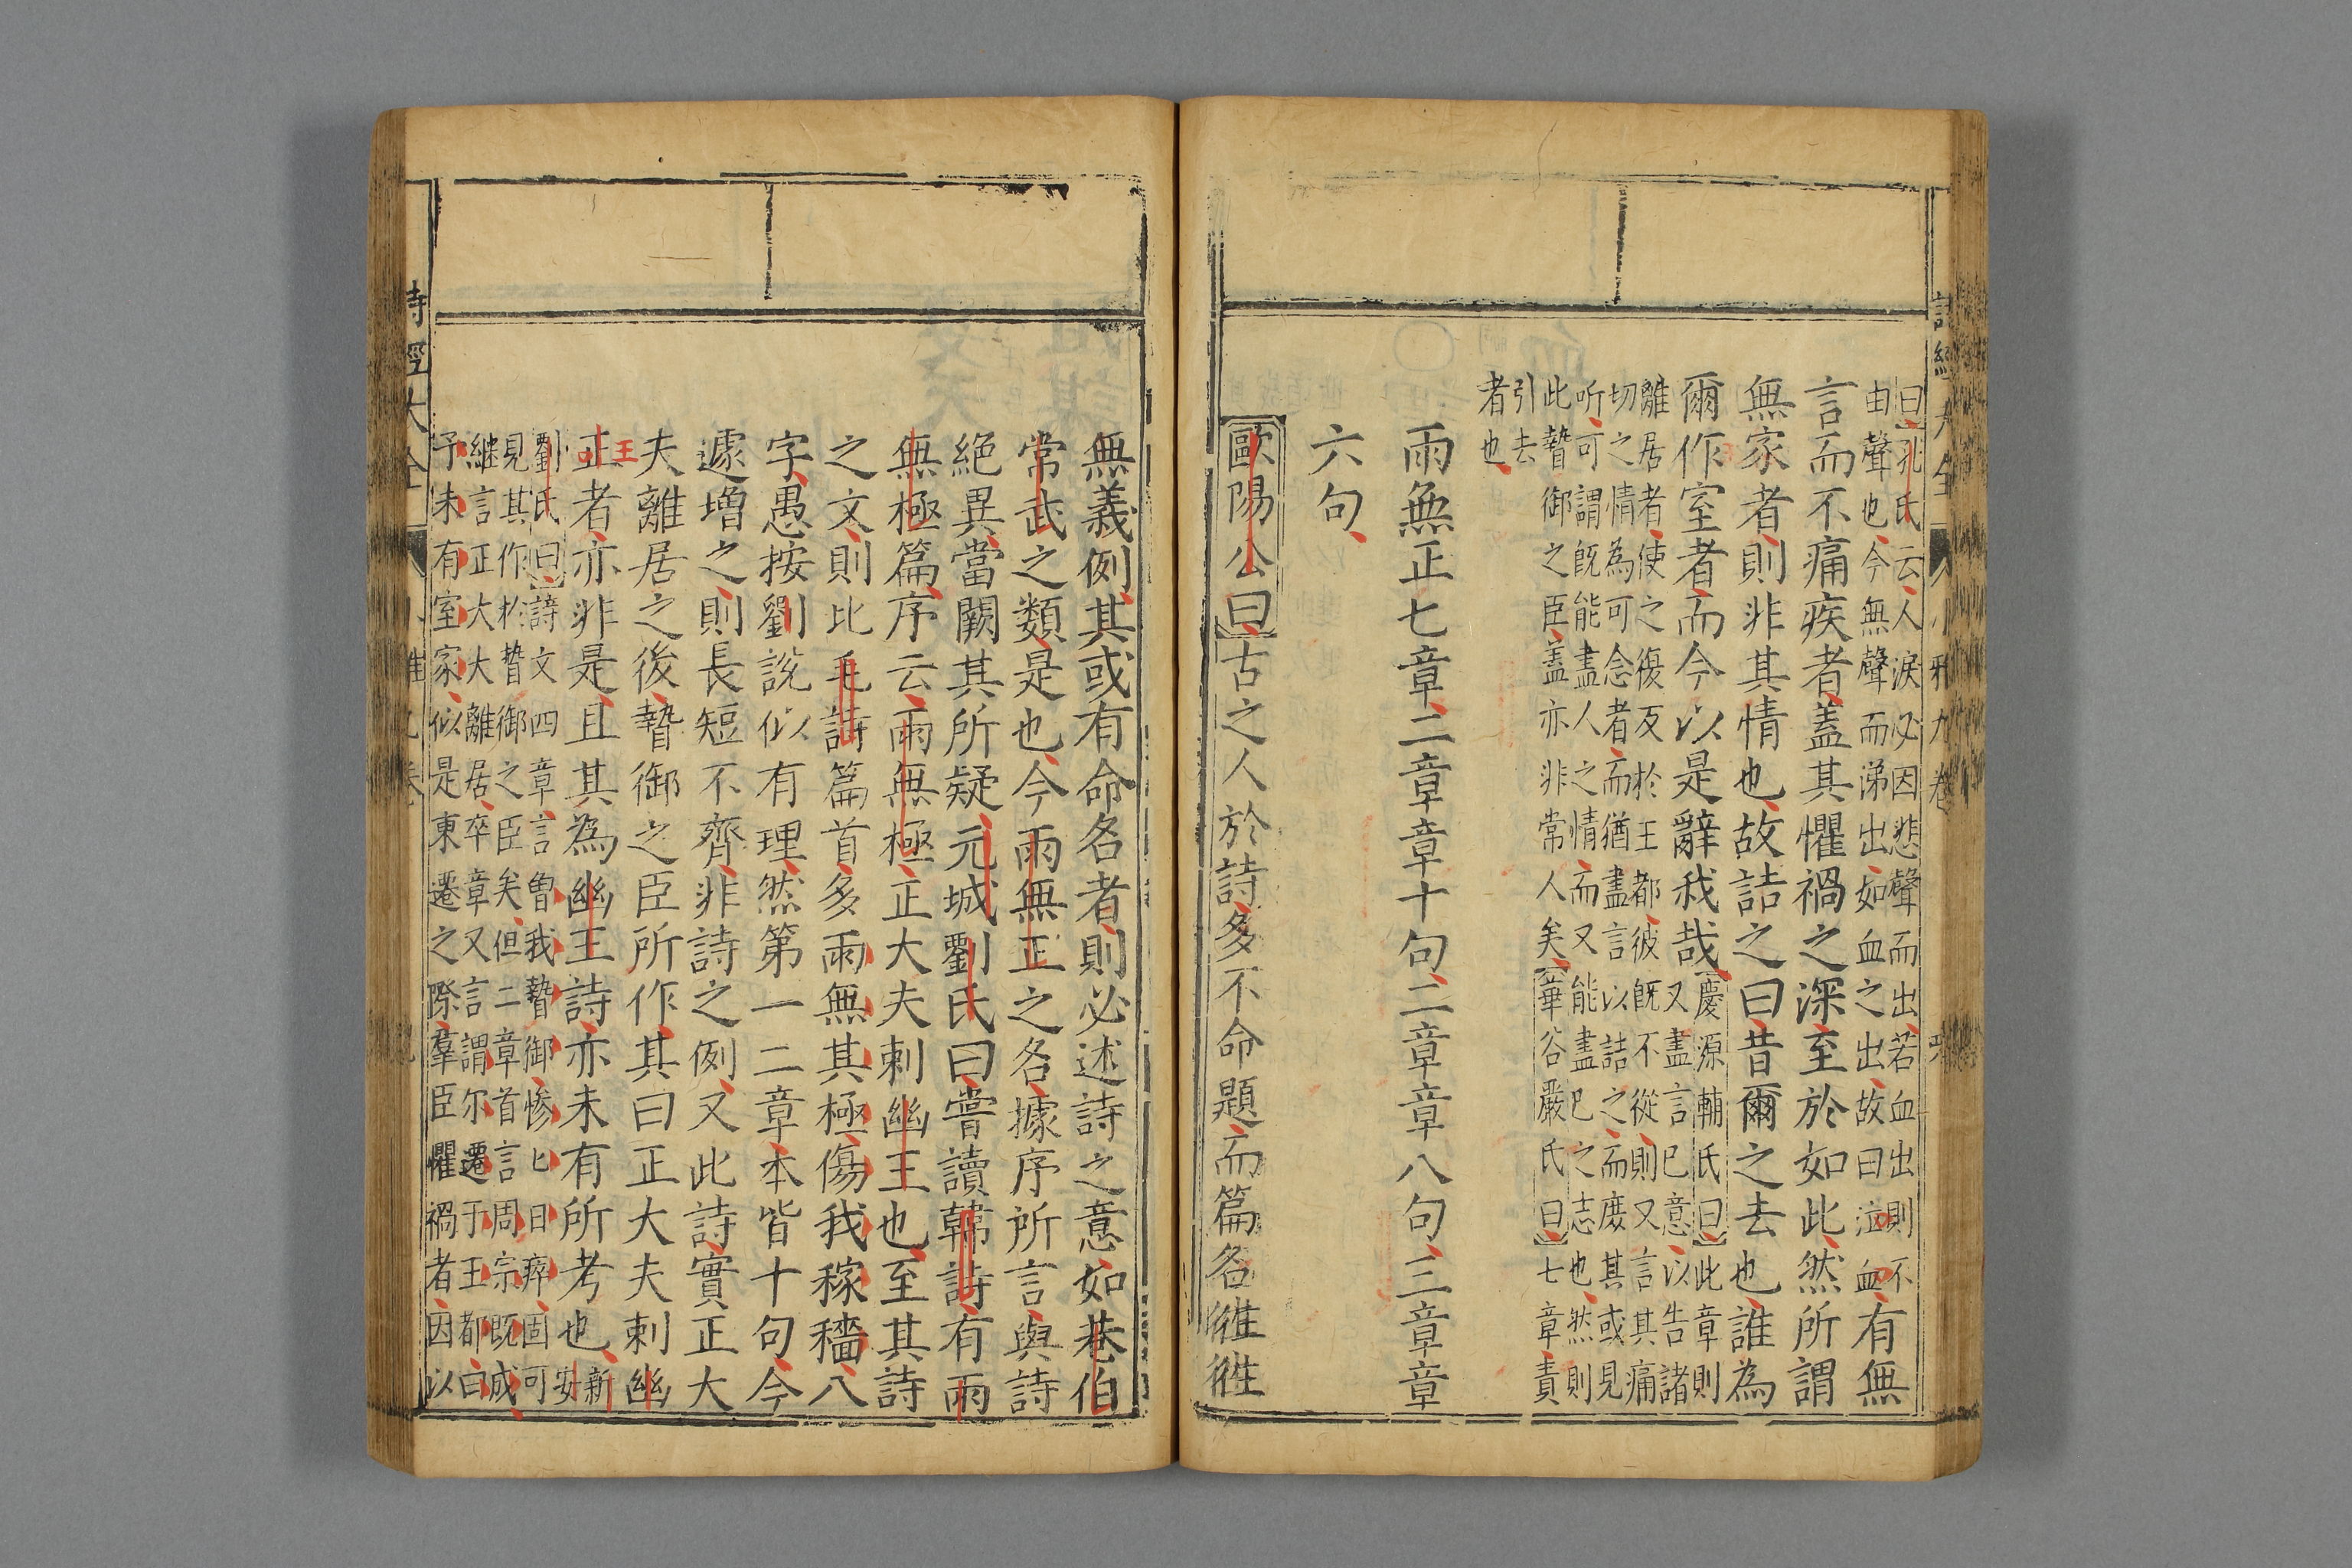 曰孔氏云人淚必因悲聲而出若血出則不
由聲也今無聲而涕出如血之出故曰泣血有無
言而不痛疾者蓋其懼禍之深至於如此然所謂
無家者則非其情也故詰之曰昔爾之去也誰為
爾作室者而今以是辭我哉慶源輔氏曰此章則
又盡言已意以告諸
離居者使之復反於王都彼既不從則又言其痛
切之情為可念者而猶盡言以詰之而庶其或見
听可謂既能盡人之情而又能盡已之志也然則
此暬御之臣蓋亦非常人矣華谷嚴氏曰七章責
引去
者也
雨無正七章二章章十句二章章八句三章章
六句
歐陽公曰古之人於詩多不命題而篇名徃徃
無義例其或有命名者則必述詩之意如巷伯
常武之類是也今雨無正之名據序所言與詩
絕異當闕其所疑元城劉氏曰嘗讀韓詩有雨
無極篇序云雨無極正大夫刺幽王也至其詩
之文則比毛詩篇首多雨無其極傷我稼穡八
字愚按劉說似有理然第一二章本皆十句今
遽增之則長短不齊非詩之例又此詩實正大
夫離居之後暬御之臣所作其曰正大夫刺幽
王
正者亦非是且其為幽王詩亦未有所考也新
安
劉氏曰詩文四章言曾我暬御憯匕日瘁固可
見其作於暬御之臣矣但二章首言周宗既滅
継言正大夫離居卒章又言謂尔遷于王都曰
予未有室家似是東遷之際羣臣懼禍者因以
詩經大全
小雅九卷